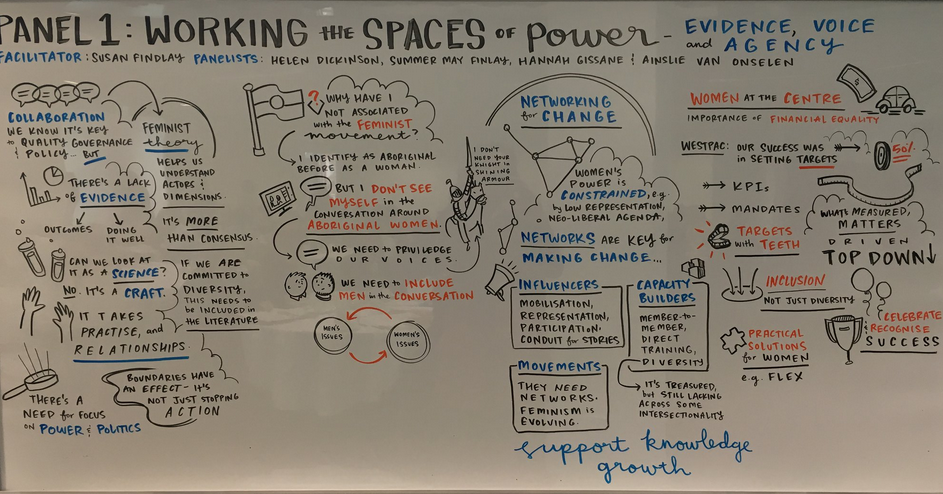 PANEL 1: WORKING THE SPACES OF POWER - EVIDENCE, VOICE
and AGENCY
FACILITATOR: SUSAN FINDLAY PANELISTS: HELEN DICKINSON, SUMMER MAY FINLAY, HANNAH GISSANE & AINSLIE VAN ONSELEN
COLLABORATION
WE KNOW IT'S KEY
to QUALITY GOVERNANCE
& POLICY... BUT
THERE'S A LACK
of EVIDENCE
OUTCOMES
DOING
IT WELL
CAN WE LOOK AT
IT AS A SCIENCE?
NO. IT'S A CRAFT.
IT TAKES
PRACTISE, and
RELATIONSHIPS.
THERE'S A
NEED for FOCUS
ON POWER & POLITICS
FEMINIST
theory
HELPS US
UNDERSTAND
ACTORS &
DIMENSIONS.
IT'S MORE
THAN CONSENSUS.
IF WE ARE
COMMITTED to
DIVERSITY,
THIS NEEDS
to BE INCLUDED in
THE LITERATURE
BOUNDARIES HAVE
AN EFFECT - IT'S
NOT JUST STOPPING
ACTION
?
WHY HAVE I
NOT ASSOCIATED
with the FEMINIST
movement?
I IDENTIFY AS ABORIGINAL
BEFORE AS A WOMAN.
BUT I DON'T SEE
MYSELF in the
CONVERSATION AROUND
ABORIGINAL WOMEN.
WE NEED to PRIVILEGE
OUR VOICES.
WE NEED to INCLUDE
MEN in the CONVERSATION
MEN'S
ISSUES
WOMEN'S
ISSUES
I DON'T
NEED YOUR
KNIGHT in
SHINING
ARMOUR
NETWORKING
for CHANGE
WOMEN'S
POWER is
CONSTRAINED, e.g.
by LOW REPRESENTATION,
NEO-LIBERAL AGENDA,
NETWORKS ARE KEY for
MAKING CHANGE...
INFLUENCERS
MOBILISATION,
REPRESENTATION,
PARTICIPATION.
CONDUIT for STORIES
CAPACITY
BUILDERS
MEMBER-to-
MEMBER,
DIRECT
TRAINING,
DIVERSITY
IT'S TREASURED,
but STILL LACKING
ACROSS SOME
INTERSECTIONALITY
MOVEMENTS
THEY NEED
NETWORKS.
FEMINISM is
EVOLVING.
support knowledge
growth
WOMEN AT the CENTRE
IMPORTANCE of FINANCIAL EQUALITY
WESTPAC: OUR SUCCESS WAS
in SETTING TARGETS
50%
KPIs
MANDATES
TARGETS
with TEETH
WHAT'S MEASURED,
MATTERS
DRIVEN
TOP DOWN
INCLUSION
NOT JUST DIVERSITY
PRACTICAL
SOLUTIONS
for WOMEN
e.g. FLEX
CELEBRATE
RECOGNISE
SUCCESS